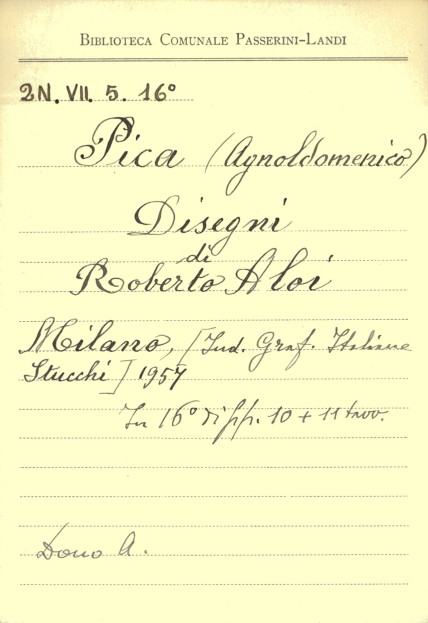 BIBLIOTECA COMUNALE PASSERINI-LANDI
2N. VII. 5. 16°
Pica (Agnoldomenico)
Disegni
di
Roberto Aloi
Milano, [Ind. Graf. Italiane
Stucchi] 1957
In 16° di pp. 10 + 11 tavv.
Dono A.